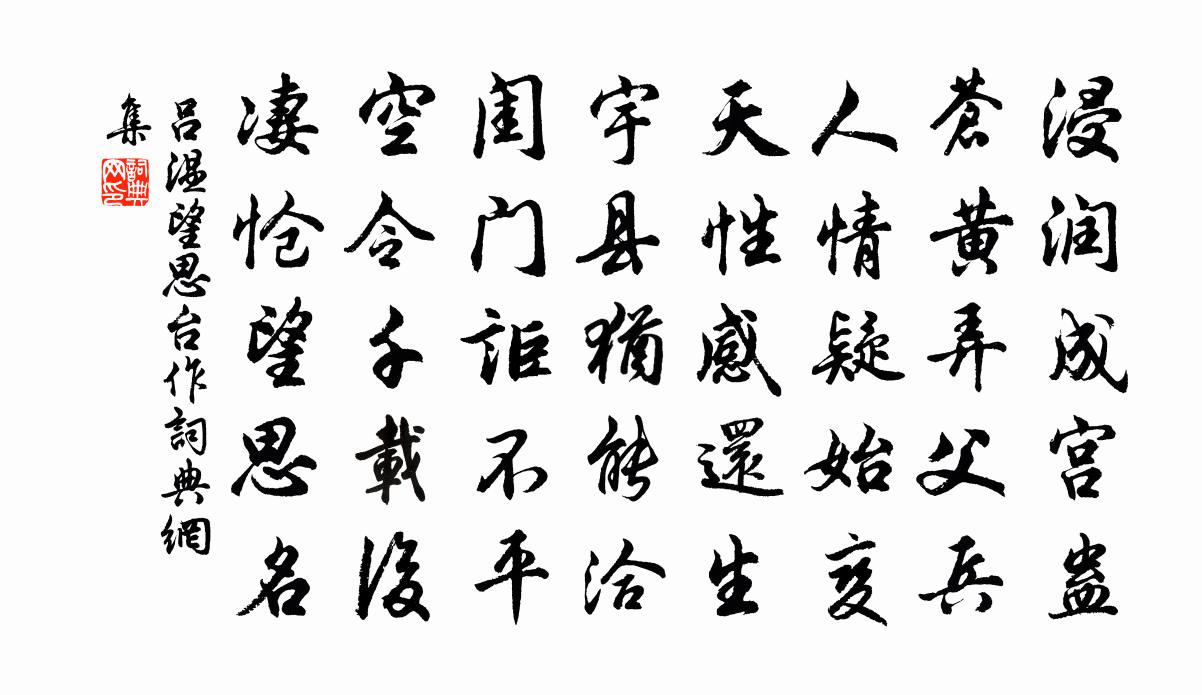 浸润成宫蛊
苍黄弄父兵
人情疑始变
天性感還生
宇县猶能洽
闺门詎不平
空令千載後
凄怆望思名
吕温望思台作詞典網
集
詞典网印